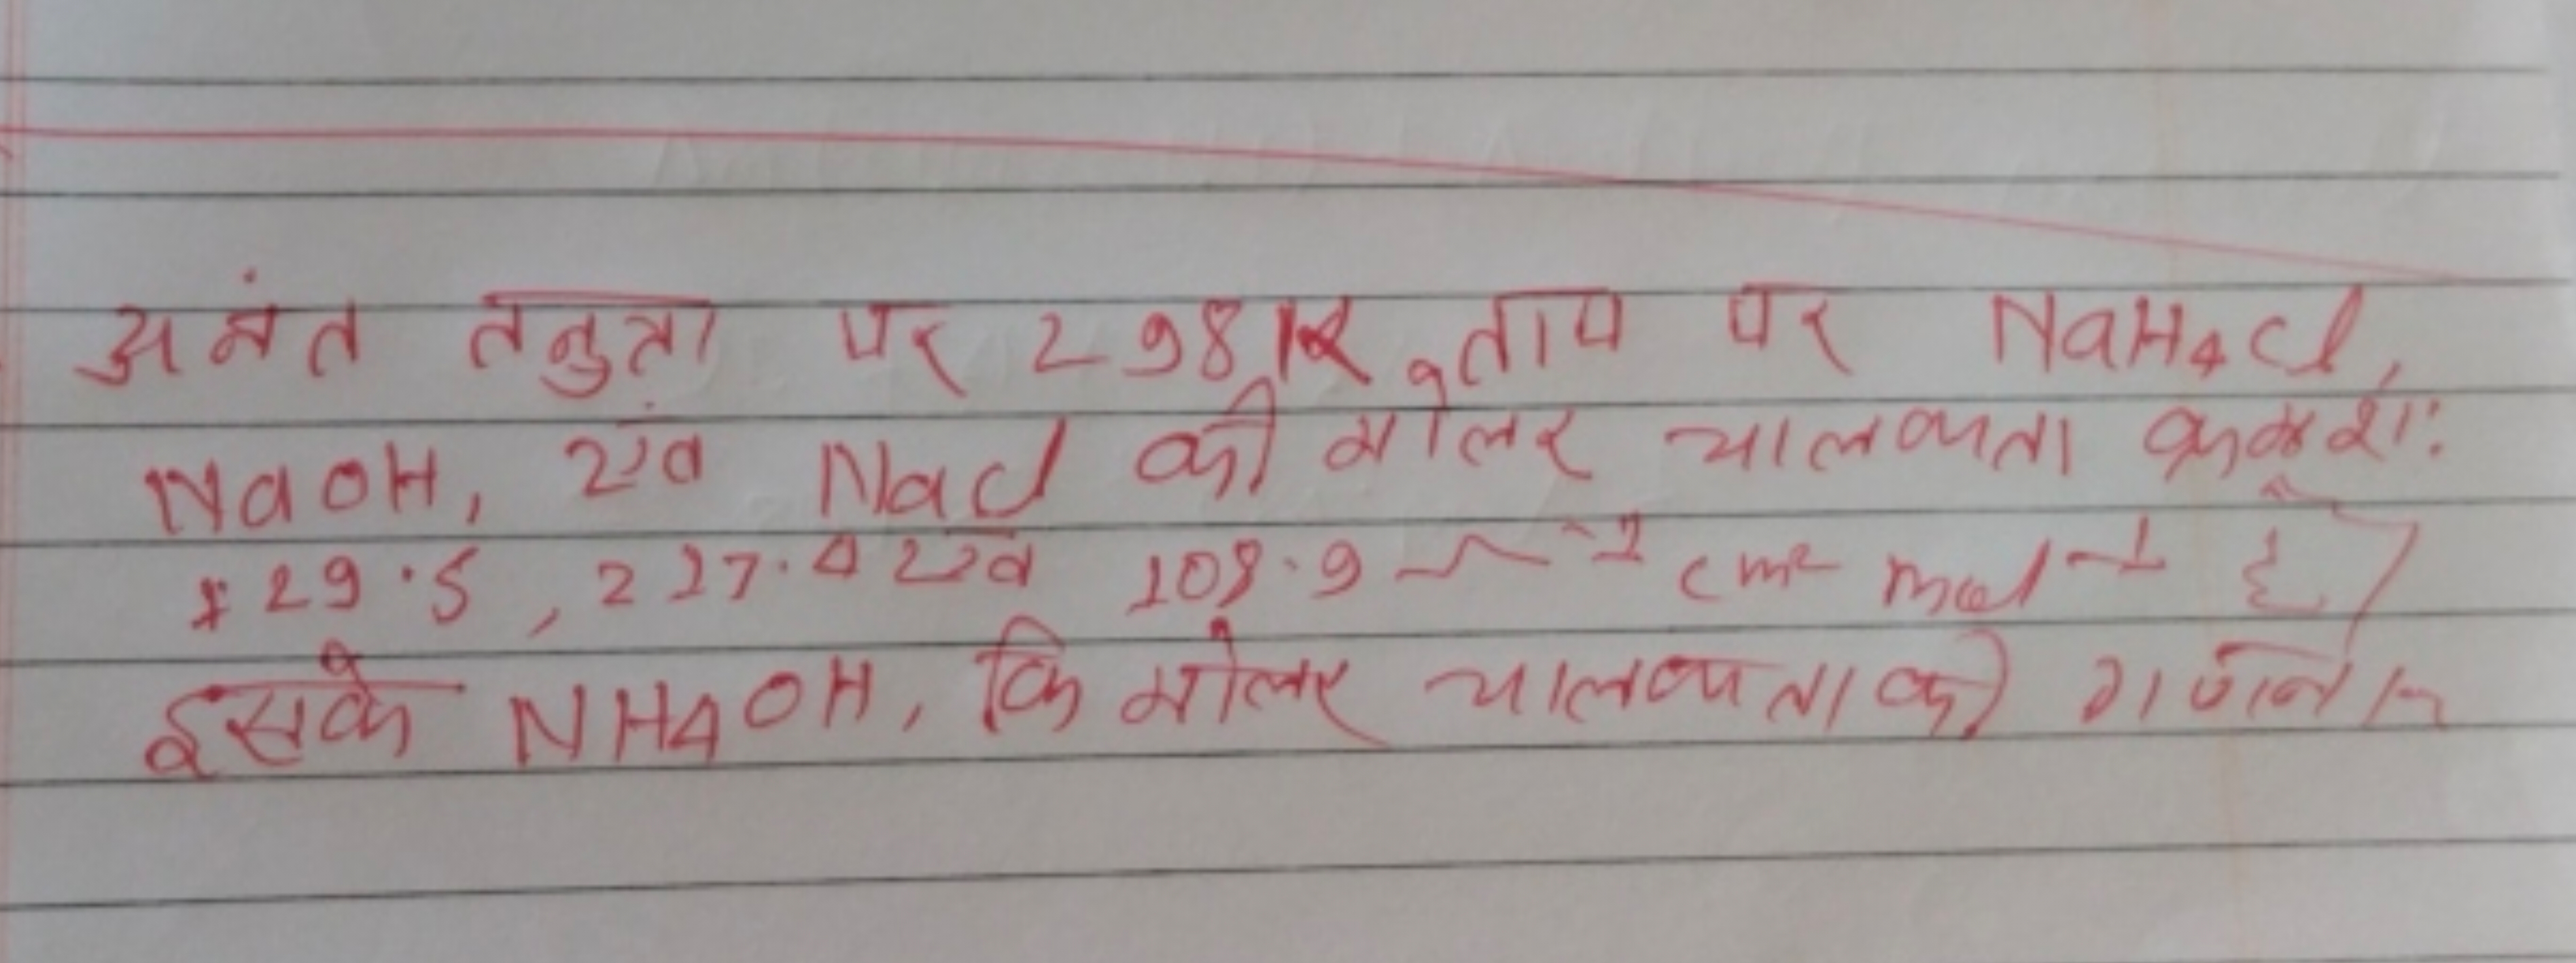 अनंत तनुता पर 298 K ताप पर NaH4Cl,
NaOH, एवं NaCl की मोलर चालकता क्रमशः
129.5, 217.4 एवं 108.9 Ω⁻¹ cm² mol⁻¹ है
इसके NH4OH, कि मोलर चालकता की गणना